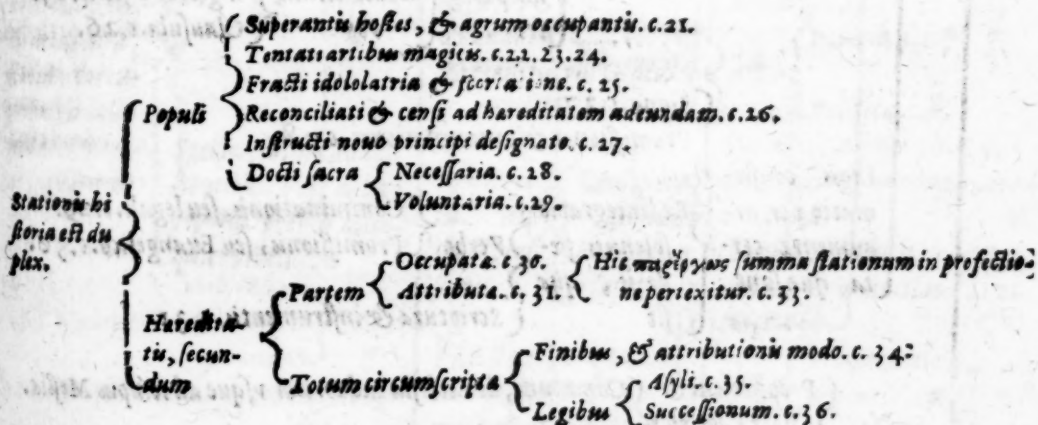 Superantis hostes, & agrum occupantis. c.21.
Tentati artibus magicis. c.22. 23. 24.
Fracti idololatria & scortatione. c. 25.
Populi
Reconciliati & censi ad hareditatem adeundam. c.26.
Instructi nouo principe designato. c. 27.
Docti sacra
Necessaria. c. 28.
Voluntaria. c.29.
Stationis hi
storia est du
plex.
Haredita-
tis, secun-
dum
Partem
Occupata. c. 30.
Attributa. c. 31.
Hic παρέργως summa stationum in profectio-
ne pertexitur. c. 33.
Totum circumscripta
Finibus, & attributionis modo. c. 34.
Legibus
Asyli. c. 35.
Successionum. c. 36.